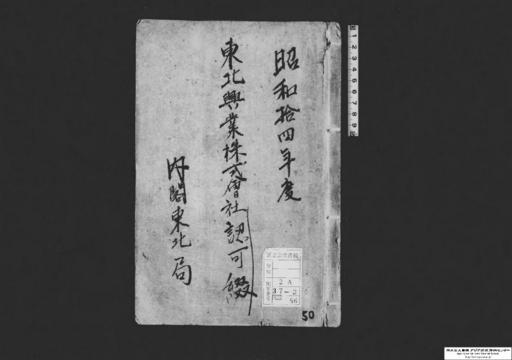 昭和拾四年度
東北興業株式會社認可綴
内閣東北局
2A
37-2
50
1 2 3 4 5 6 7 8 9